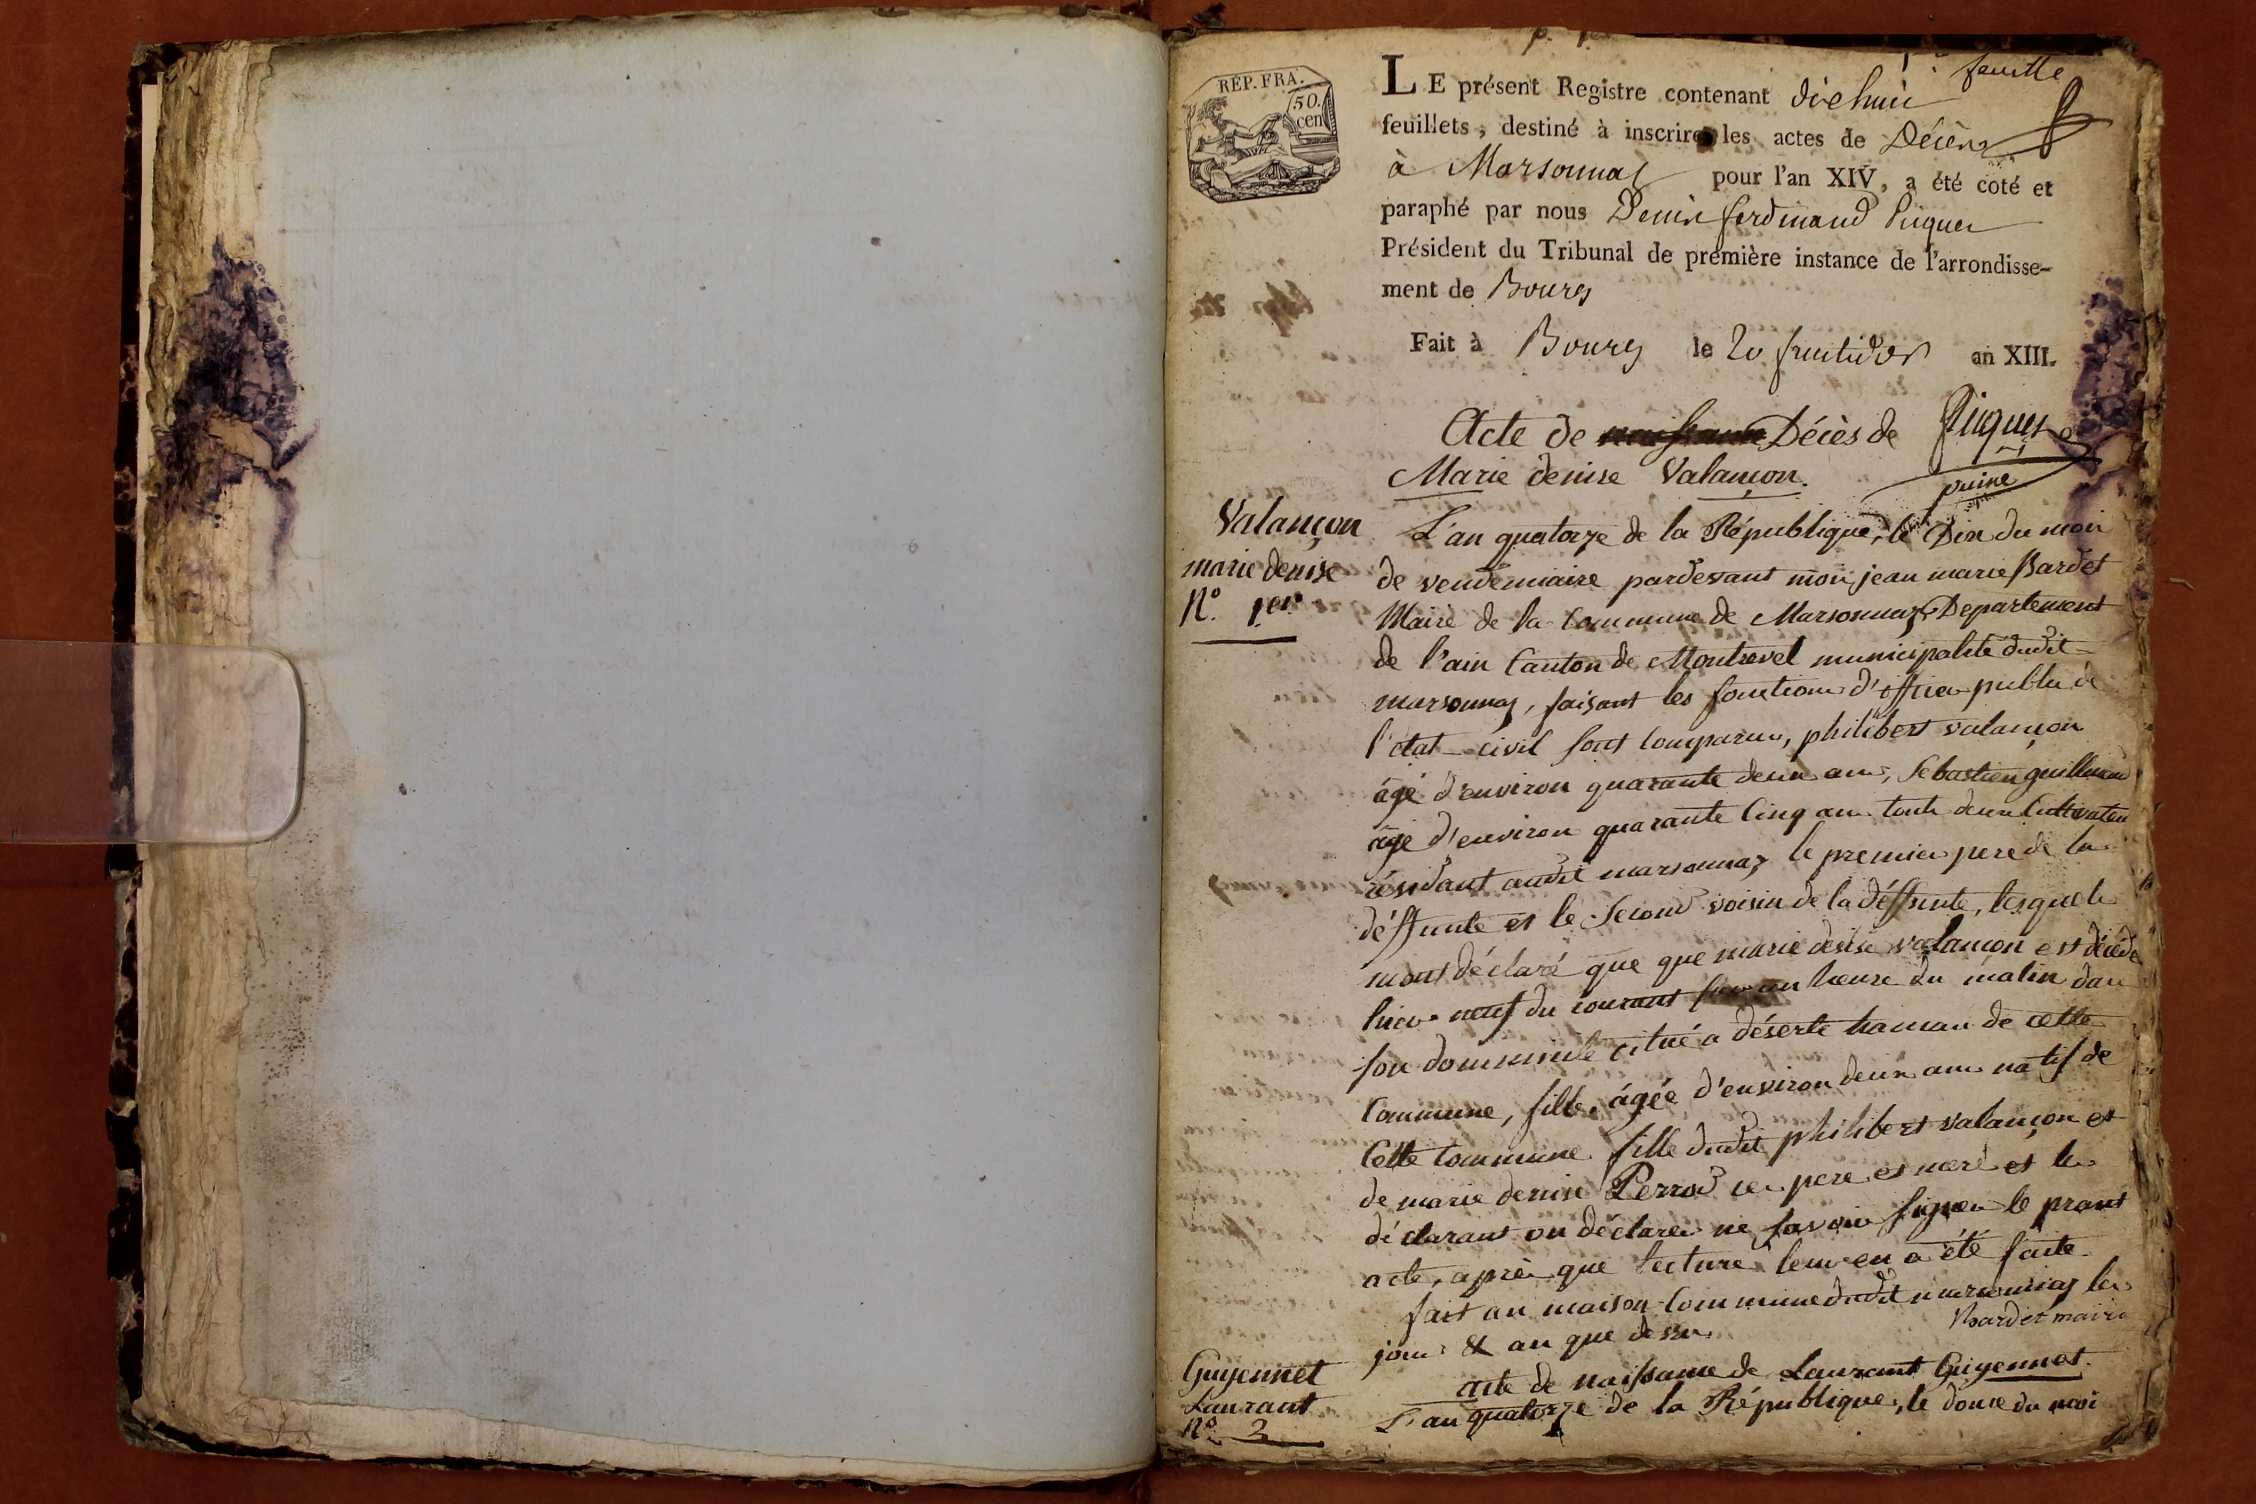 1re feuille
REP. FRA.
50. cen
LE présent Registre contenant dixhuit
feuillets, destiné à inscrire les actes de Décès
à Marsonnaz pour l'an XIV, a été coté et
paraphé par nous Denis ferdinand Picquet
Président du Tribunal de première instance de l'arrondisse-
ment de Bourg
Fait à Bourg le 20 fructidor an XIII.
Picquet
puiné
Acte de naissance Décès de
Marie denise Valançon.
Valançon
marie denise
N.º 1er.
L'an quatorze de la République, le Dix du mois
de vendémiaire pardevant moi jean marie Bardet
Maire de la Commune de Marsonnaz Departement
de l'ain Canton de Montrevel municipalité dudit
marsonnaz, faisant les fonctions d'officier public de
l'état civil sont comparus, philibert valançon
âgé d'environ quarante deux ans, Sebastien guillemaud
âgé d'environ quarante Cinq ans touts deux Cultivateurs
résidant audit marsonnaz le premier pere de la
déffunte et le Second voisin de la déffunte, lesquels
mont déclaré que que marie denise valançon est décédé
hier neuf du courant sur un heure du matin dans
son dommicile citué a déserte hamau de cette
Commune, fille, âgée d'environ deux ans natif de
Cette Commune fille dudit philibert valançon et
de marie denise Perrod ces pere et mere et les
déclarant on déclarer ne savoir signer le prant
acte, après que lecture leur en a été faite
fait au maison Commune dudit marsonnaz les
jour & an que dessus
Bardet maire
Guyennet
Laurant
Nº 2
acte de naissance de Laurant Guyennet.
L'an quatorze de la République, le douze du moi